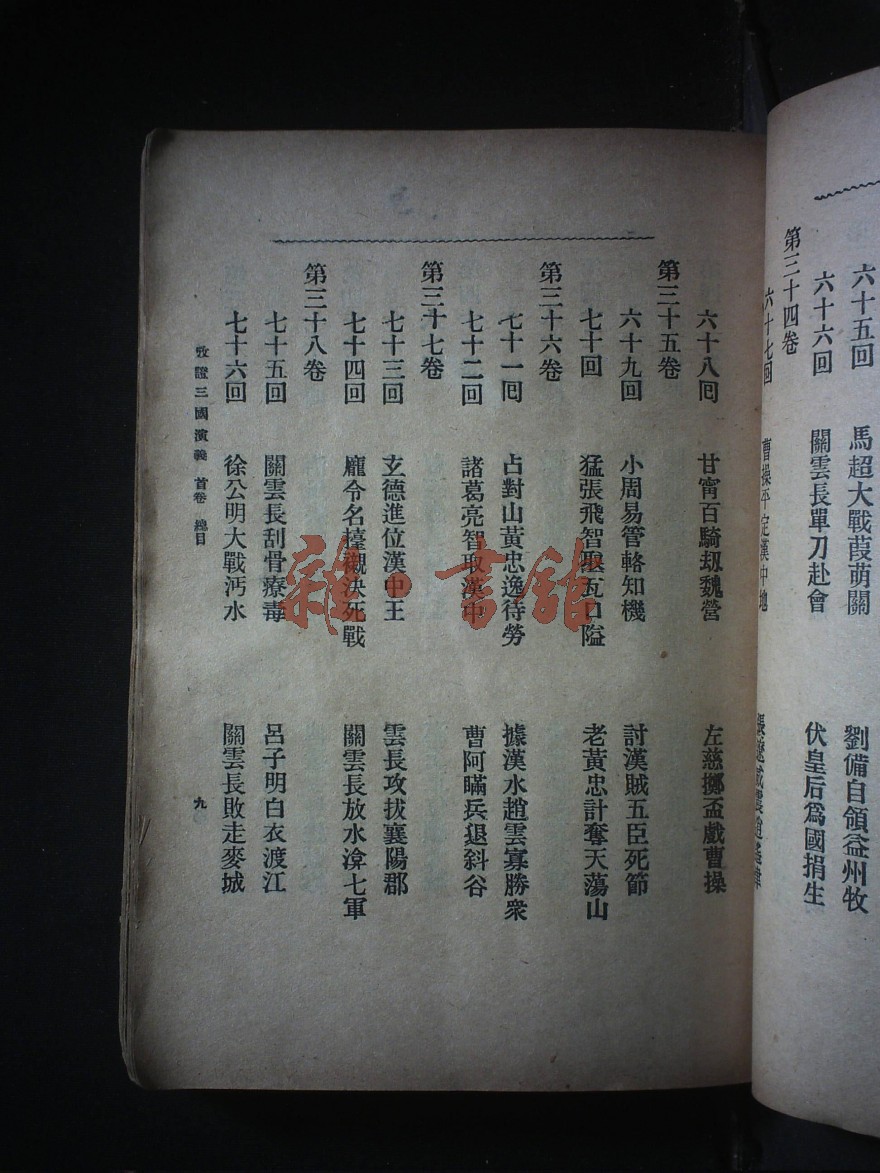 六十五回 馬超大戰葭萌關 劉備自領益州牧
六十六回 關雲長單刀赴會 伏皇后爲國捐生
第三十四卷
六十七回 曹操平定漢中地 張遼威震逍遙津
六十八囘 甘甯百騎刼魏營 左慈擲盃戲曹操
第三十五卷
六十九回 小周易管輅知機 討漢賊五臣死節
七十回 猛張飛智取瓦口隘 老黃忠計奪天蕩山
第三十六卷
七十一囘 占對山黃忠逸待勞 據漢水趙雲寡勝衆
七十二回 諸葛亮智取漢中 曹阿瞞兵退斜谷
第三十七卷
七十三回 玄德進位漢中王 雲長攻拔襄陽郡
七十四回 龐令名擡櫬決死戰 關雲長放水渰七軍
第三十八卷
七十五回 關雲長刮骨療毒 呂子明白衣渡江
七十六回 徐公明大戰沔水 關雲長敗走麥城
攷證三國演義 首卷 總目 九
雜·書館